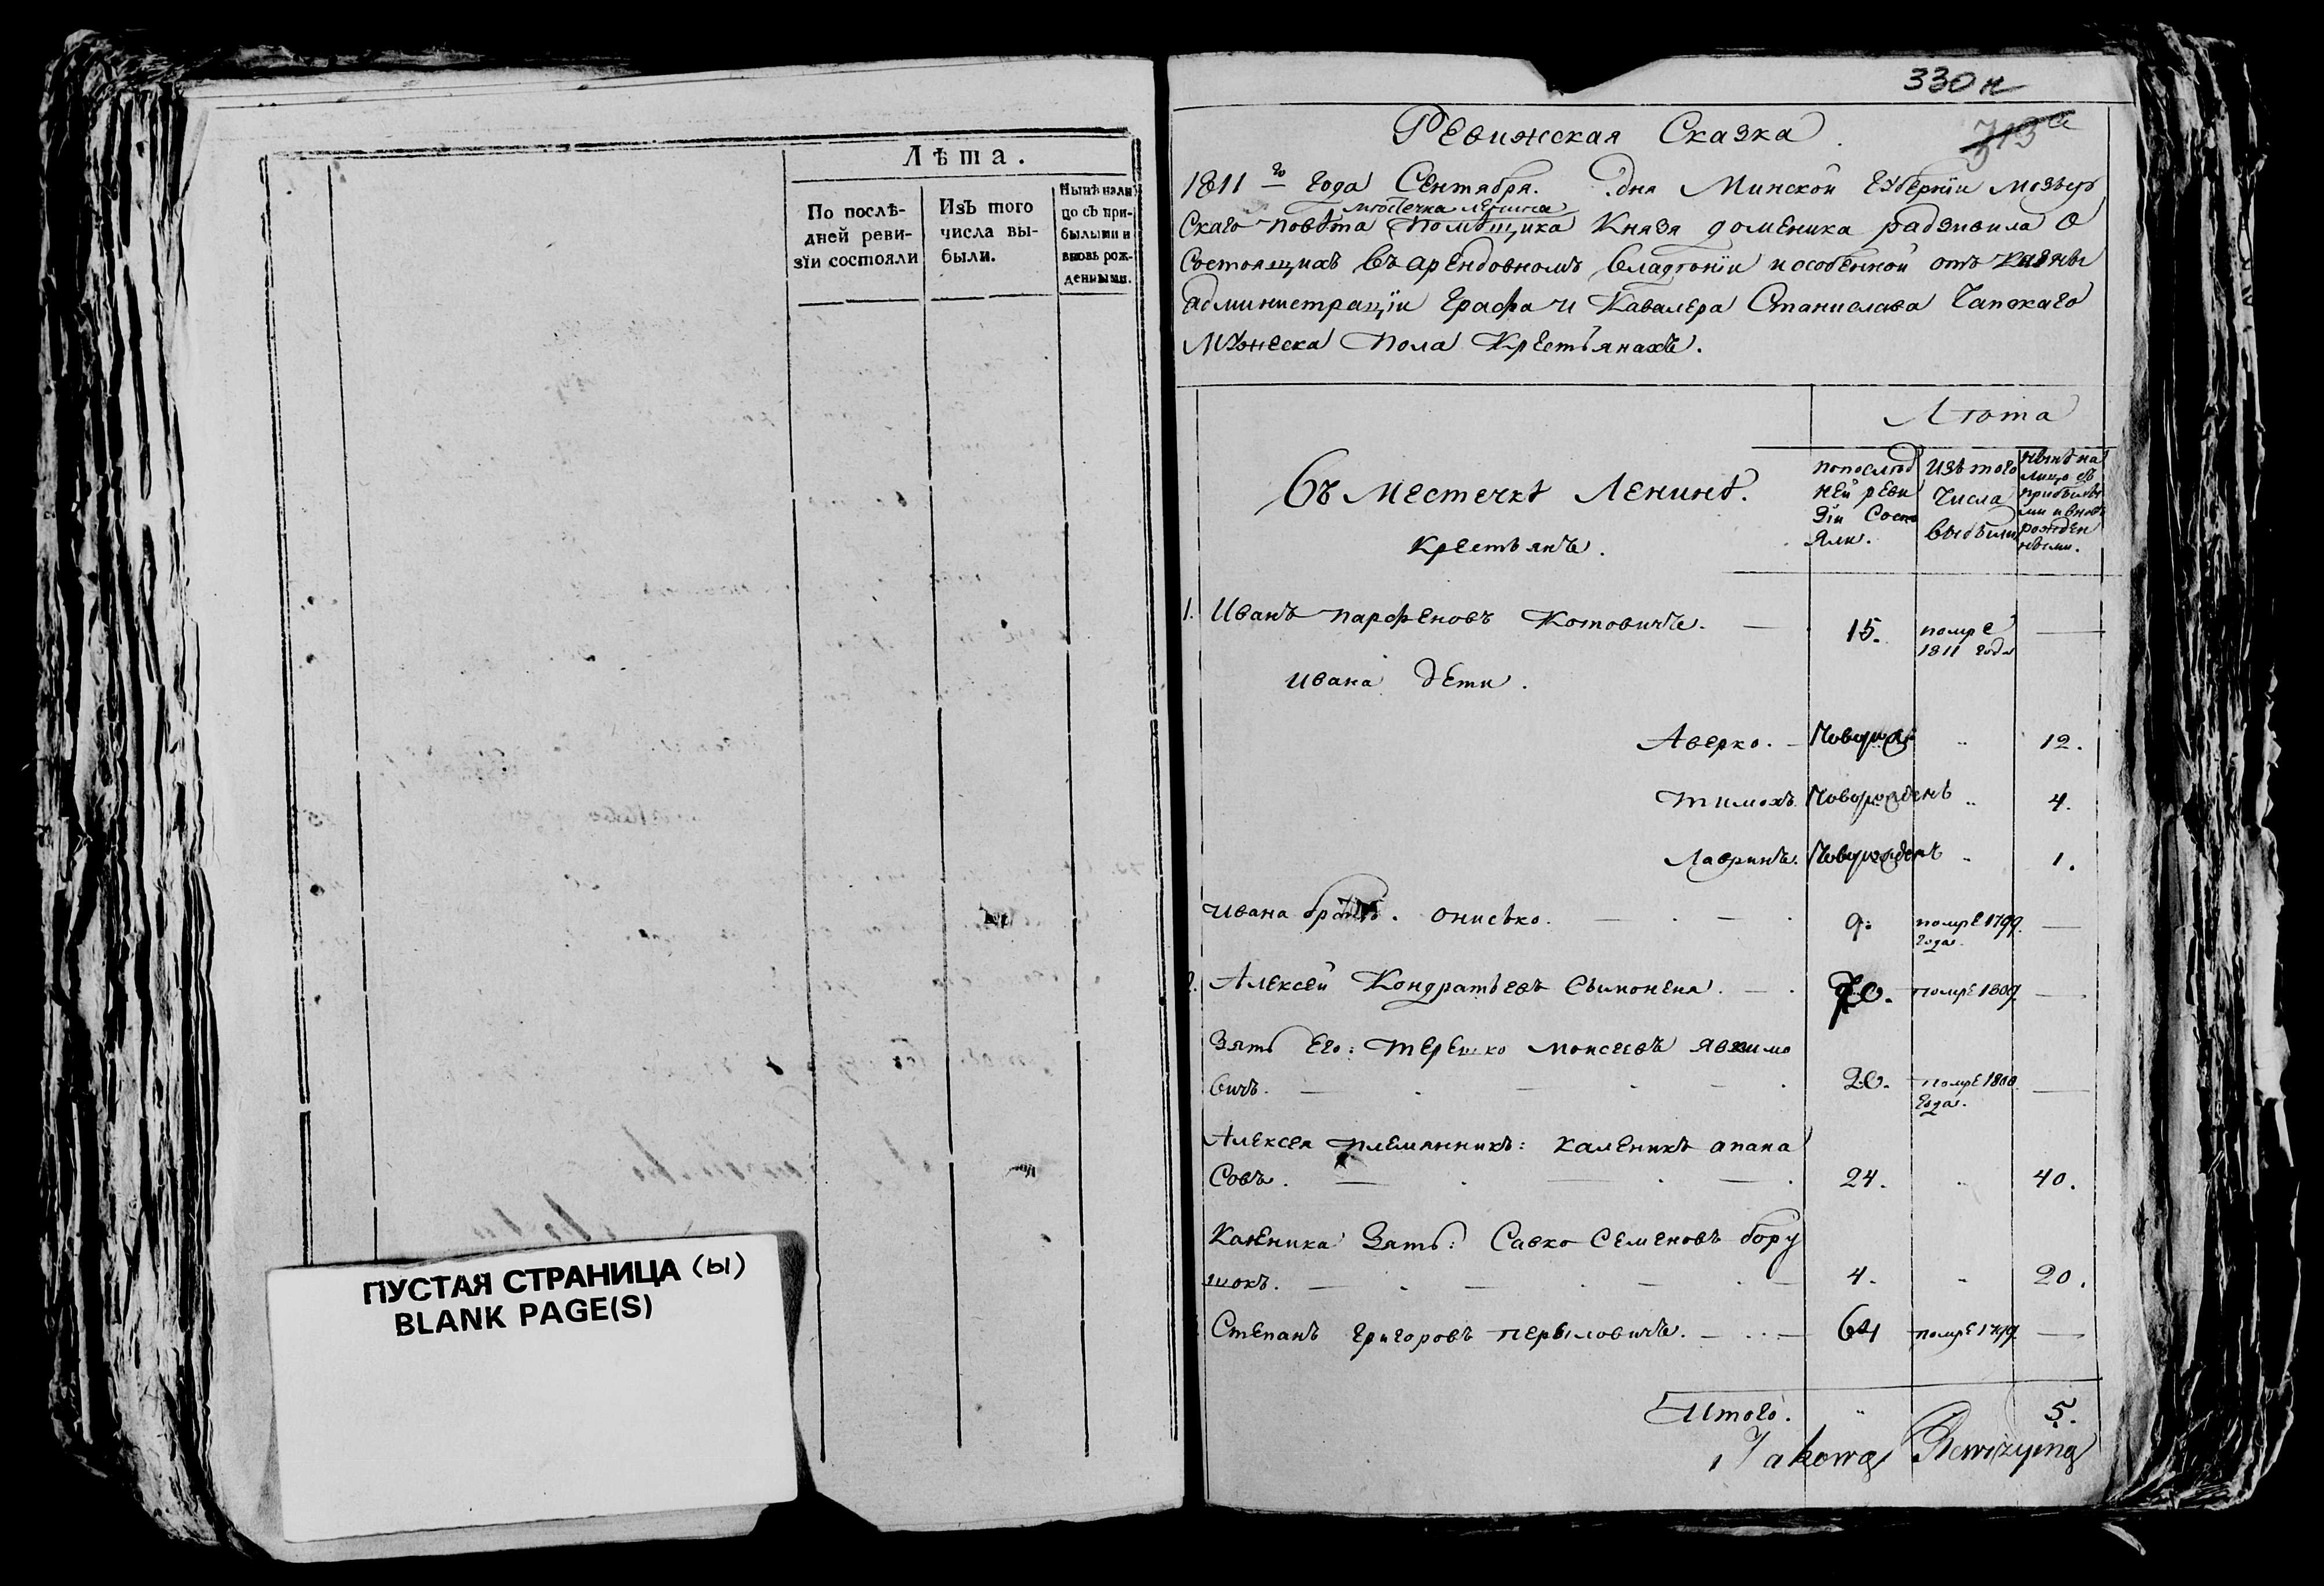 Лѣта.
По послѣ-
дней реви-
зїи состояли
Изъ того
числа вы-
были.
Нынѣ нали
цо съ при-
былыми и
вновь рож-
денными.
ПУСТАЯ СТРАНИЦА (Ы)
BLANK PAGE(S)
330 н
313 а
Ревижская Сказка.
1811го года Сентября. дня Минской Губернїи Мозыр
местечка Ленина
Скаго повѣта Помѣщика Князя доменика радзивила О
Состоящихъ въ арендовномъ владѣнїи и особенной отъ казны
администрацїи Графа и Кавалера Станислава Чапскаго
Мужеска Пола Крестьянахъ.
Лѣта
Въ Местечкѣ Ленинѣ.
Крестьянъ.
попослѣд
ней реви
зїи Состо
яли.
Изъ того
Числа
выбыли
нынѣ на
лицо съ
прибылы
ми и вновь
рожден
ными.
1. Иванъ парфеновъ Котовичъ. — 15. помре —
1811 года
Ивана дети.
Аверко. — Новорож „ 12.
Тимохъ. Новорожденъ „ 4.
Лавринъ. Новорожденъ „ 1.
Ивана братъ. Онисько. — 9. помре 1799 —
года.
2. Алексей Кондратьевъ Сымоненя. — 70. помре 1809 —
Зять Его: Терешко Моисеевъ Явхимо
вичъ. — 20. помре 1800 —
года.
Алексея племянникъ: каленикъ апана
совъ. — 24. „ 40.
Каленика Зять: Савко Семеновъ бору
шокъ. — 4. „ 20.
Степанъ Григоровъ первыловичъ. — 64 помре —
Итого. „ 5.
Jakową